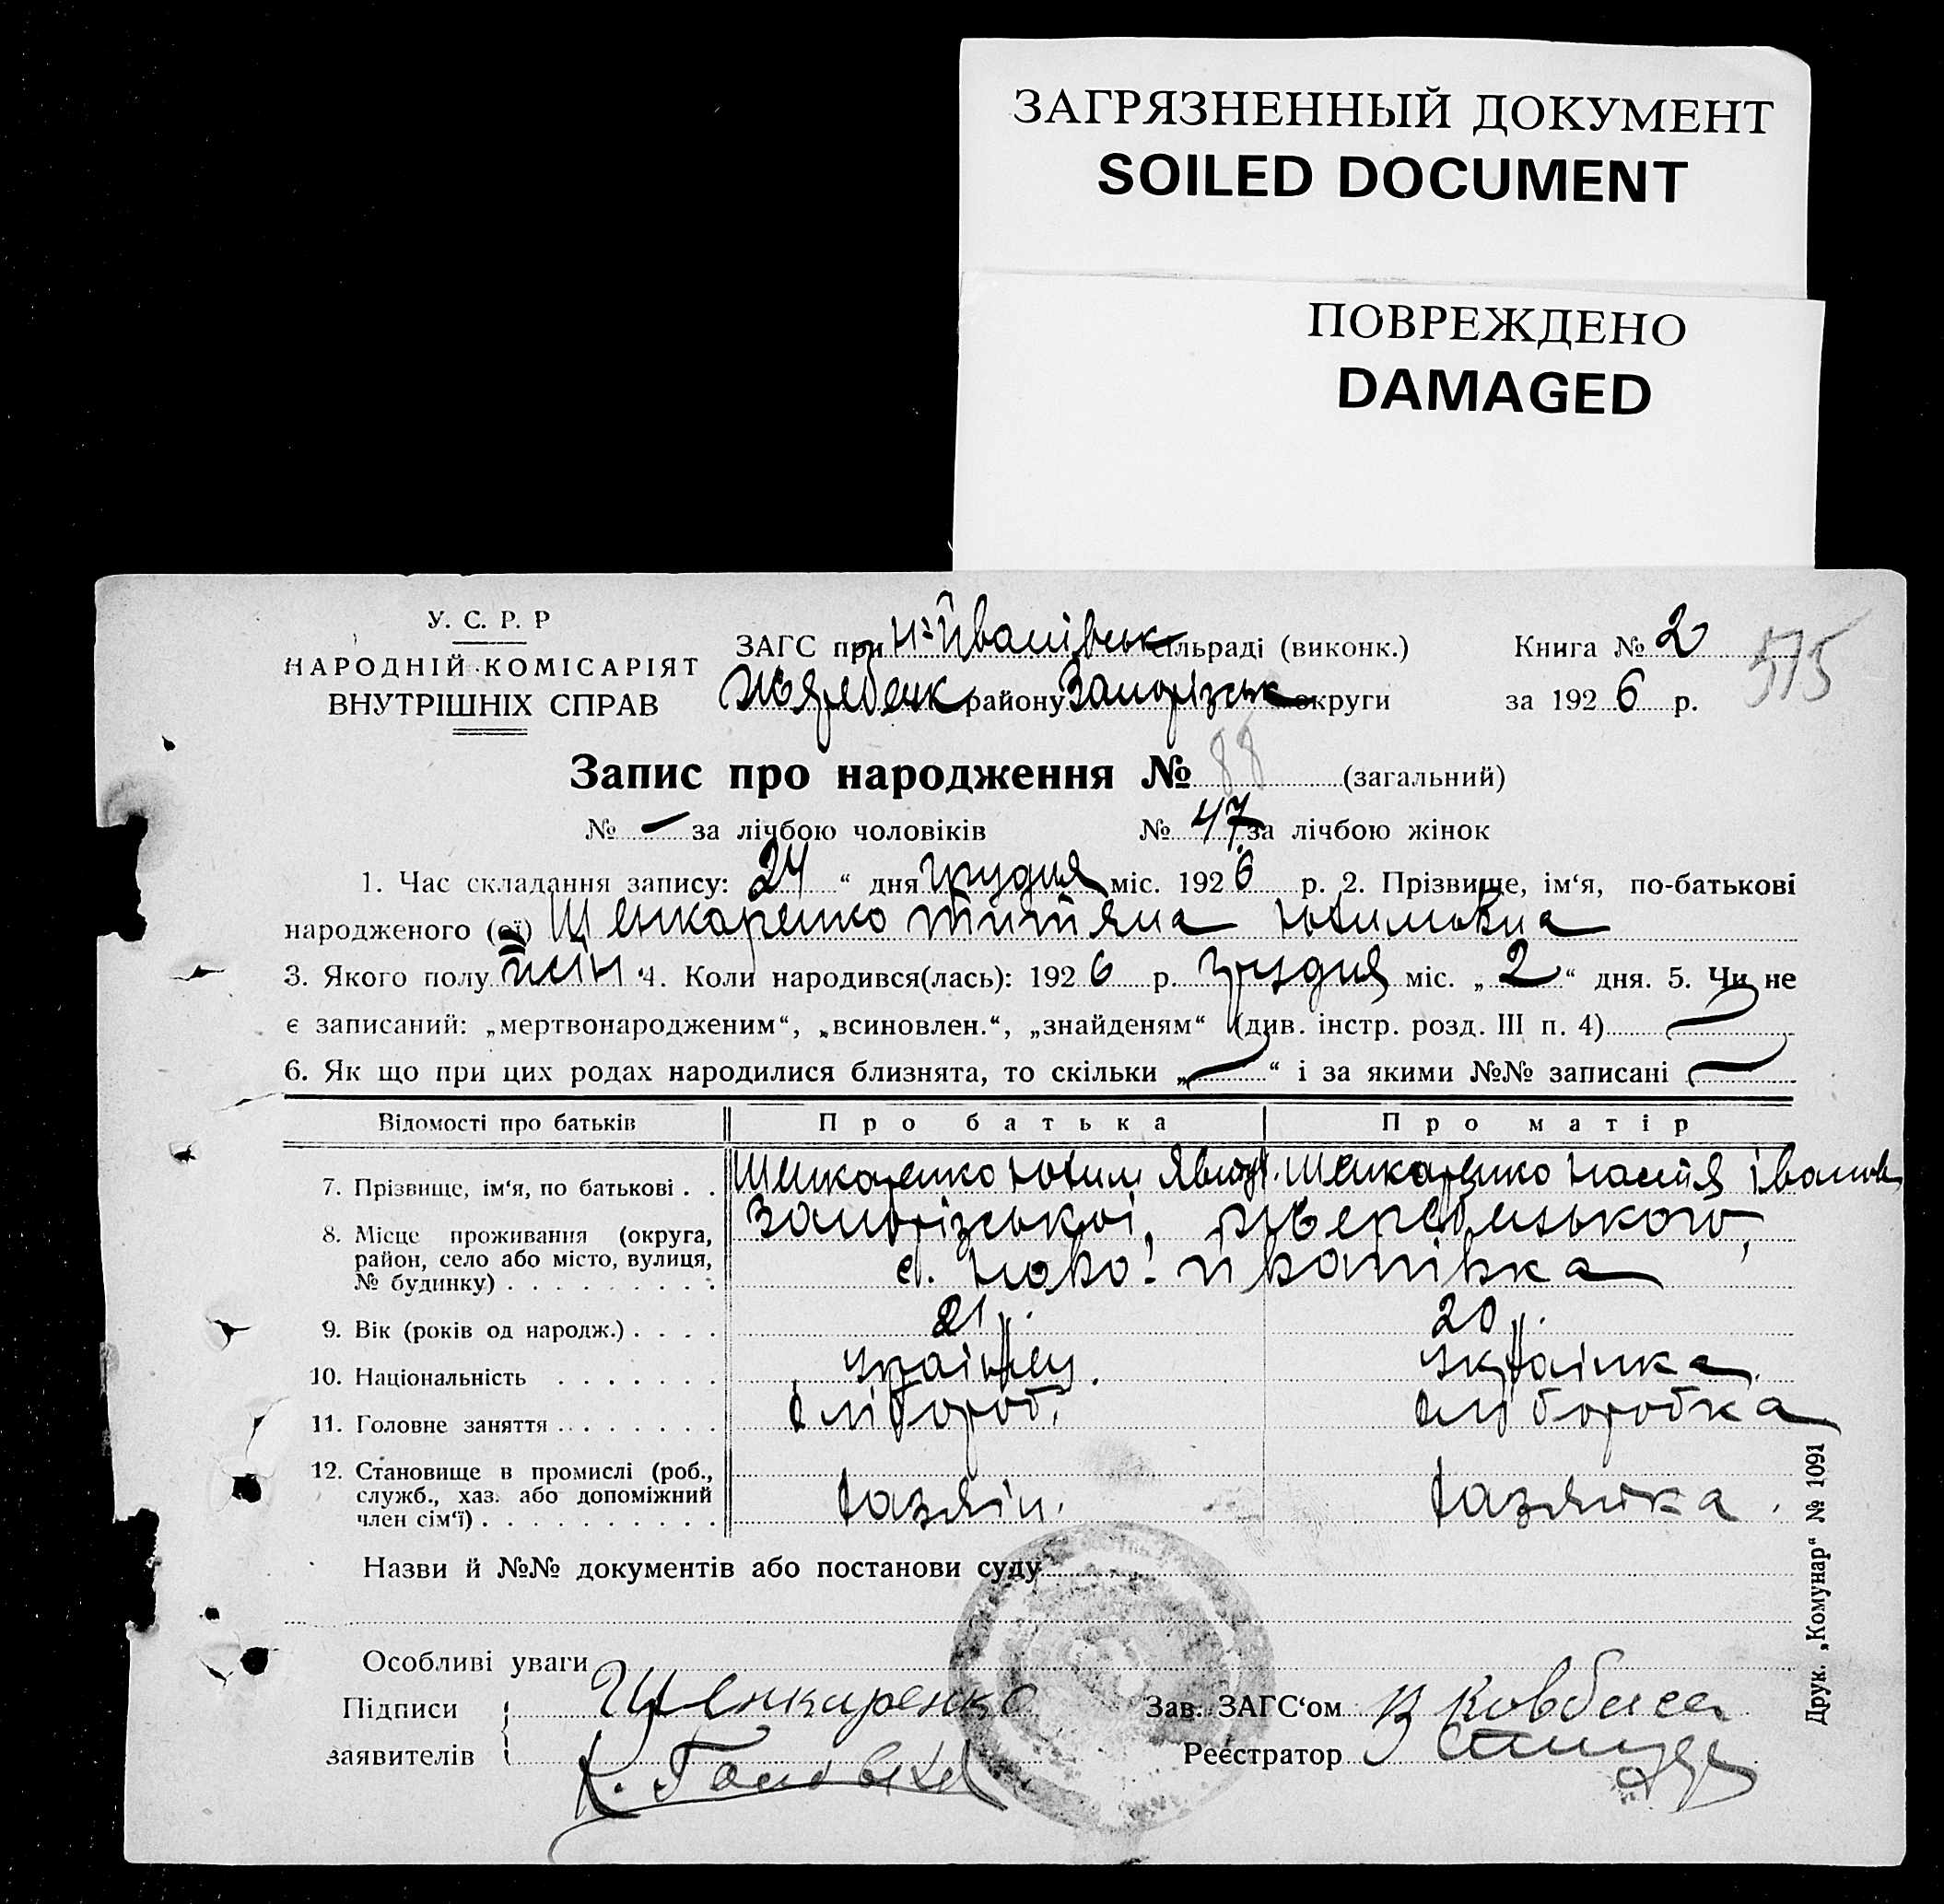 ЗАГРЯЗНЕННЫЙ ДОКУМЕНТ
SOILED DOCUMENT
ПОВРЕЖДЕНО
DAMAGED
У. С. Р. Р
НАРОДНІЙ КОМІСАРІЯТ
ВНУТРІШНІХ СПРАВ
ЗАГС при Н-Йванівськ сільраді (виконк.)
району Запорізськ округи
Книга № 2
за 1926 р.
515
Запис про народження № 88 (загальний)
№ — за лічбою чоловіків № 47 за лічбою жінок
1. Час складання запису: 24 “ дня грудня міс. 1926 р. 2. Прізвище, ім‘я, по-батькові
народженого (ої) Щенкаренко Титяна Юхимовна
3. Якого полу жін. 4. Коли народився(лась): 1926 р. грудня міс. „ 2 “ дня. 5. Чи не
є записаний: „мертвонародженим“, „всиновлен.“, „знайденям“ (див. інстр. розд. III п. 4)
6. Як що при цих родах народилися близнята, то скільки „ — “ і за якими №№ записані —
Відомості про батьків Про батька Про матір
7. Прізвище, ім‘я, по батькові . . Шенкаренко Юхим Шенкаренко Настя Іванов
8. Місце проживання (округа, район, село або місто, вулиця, № будинку) Запорізської,
с. Ново-Йванівка
9. Вік (років од народж.) . . . . 21 р. 20 р.
10. Національність . . . . . . . українец. українка.
11. Головне заняття . . . . . . . хлібороб. хліборобка
12. Становище в промислі (роб., служб., хаз. або допоміжний член сім‘ї) . . . . . . . . . . хазяїн. хазяйка.
Назви й №№ документів або постанови суду
Особливі уваги
Підписи заявителів Щенкаренко
Зав. ЗАГС‘ом В Ковбаса
Реєстратор
Друк. „Комунар“ № 1091